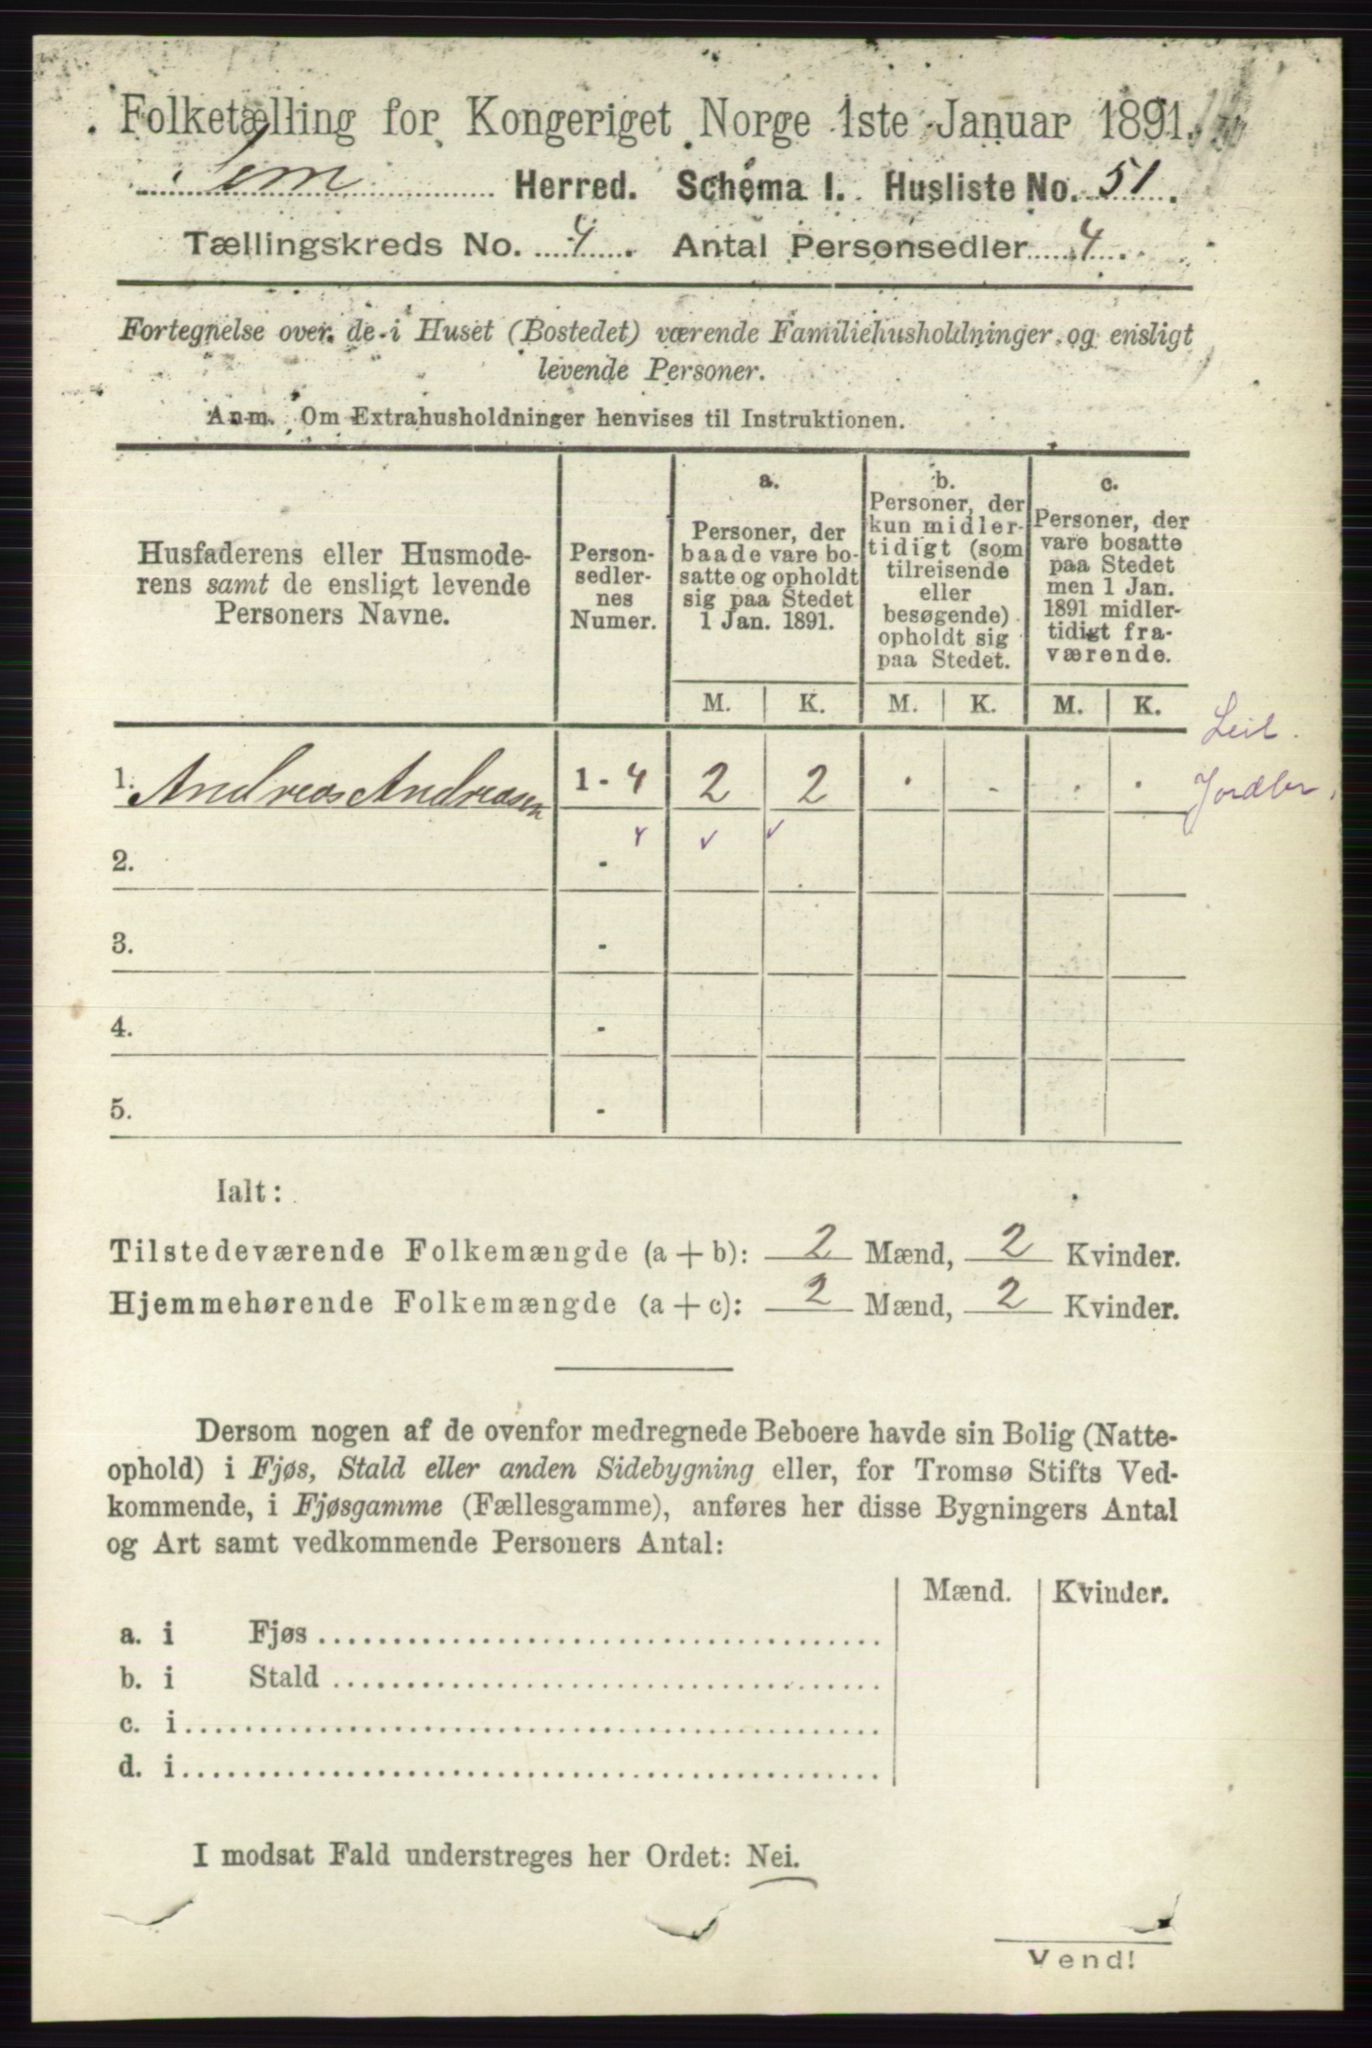 Folketælling for Kongeriget Norge 1ste Januar 1891.
Sem Herred. Schema I. Husliste No. 51.
Tællingskreds No. 4. Antal Personsedler 4.
Fortegnelse over de i Huset (Bostedet) værende Familiehusholdninger og ensligt
levende Personer.
Anm. Om Extrahusholdninger henvises til Instruktionen.
Husfaderens eller Husmode-
rens samt de ensligt levende
Personers Navne.
Person-
sedler-
nes
Numer.
a.
Personer, der
baade vare bo-
satte og opholdt
sig paa Stedet
1 Jan. 1891.
b.
Personer, der
kun midler-
tidigt (som
tilreisende
eller
besøgende)
opholdt sig
paa Stedet.
c.
Personer, der
vare bosatte
paa Stedet
men 1 Jan.
1891 midler-
tidigt fra-
værende.
M. K. M. K. M. K.
Leil.
1. Andreas Andreasen 1 - 4 2 2 . - . .
Jordbr.
2. -
3. -
4. -
5. -
Ialt:
Tilstedeværende Folkemængde (a + b): 2 Mænd, 2 Kvinder.
Hjemmehørende Folkemængde (a + c): 2 Mænd, 2 Kvinder.
Dersom nogen af de ovenfor medregnede Beboere havde sin Bolig (Natte-
ophold) i Fjøs, Stald eller anden Sidebygning eller, for Tromsø Stifts Ved-
kommende, i Fjøsgamme (Fællesgamme), anføres her disse Bygningers Antal
og Art samt vedkommende Personers Antal:
Mænd. Kvinder.
a. i Fjøs
b. i Stald
c. i
d. i
I modsat Fald understreges her Ordet: Nei.
Vend!